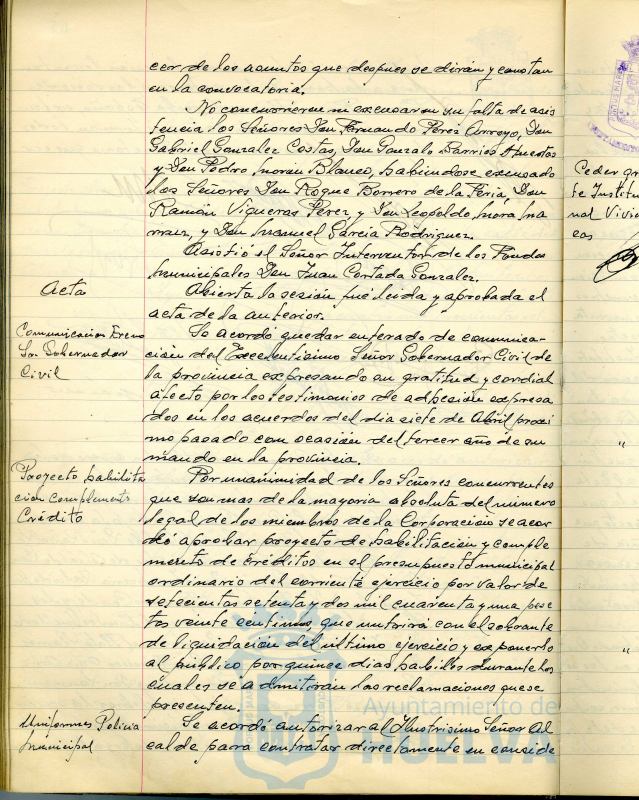 cer de los asuntos que despues se dirán y constan
en la convocatoria.
No concurrieron ni excusaron su falta de asis
tencia los Señores Don Fernando Perez Arroyo, Don
Gabriel Gonzalez Costas, Don Gonzalo Barrios Apuestas
y Don Pedro Morón Blanco, habiéndose excusado
los Señores Don Roque Borrero de la Feria, Don
Ramón Vigueras Perez y Don Leopoldo Mora Na
rraez, y Don Manuel Garcia Rodriguez.
Asistió el Señor Interventor de los Fondos
Municipales Don Juan Cortada Gonzalez.
Acta
Abierta la sesión fué leida y aprobada el
acta de la anterior.
Comunicacion Excmo
Sr. Gobernador
Civil
Se acordó quedar enterado de comunica-
ción del Excelentísimo Señor Gobernador Civil de
la provincia expresando su gratitud y cordial
afecto por los testimonios de adhesión expresa
dos en los acuerdos del dia siete de Abril próxi
mo pasado con ocasión del tercer año de su
mando en la provincia.
Proyecto habilita
cion complemento
Crédito
Por unanimidad de los Señores concurrentes
que son mas de la mayoria absoluta del número
legal de los miembros de la Corporación se acor
dó aprobar proyecto de habilitación y comple
mento de créditos en el presupuesto municipal
ordinario del corriente ejercicio por valor de
setecientas setenta y dos mil cuarenta y una pese
tas veinte centimos, que nutrirá con el sobrante
de liquidación del último ejercicio y exponerlo
al público por quince dias habiles durante los
cuales se admitirán las reclamaciones que se
presenten.
Uniformes Policia
Municipal
Se acordó autorizar al Ilustrisimo Señor Al
calde para contratar directamente en conside
Ceder gr
te Institu
nal Vivie
cas
"
"
Ayuntamiento de
HUELVA